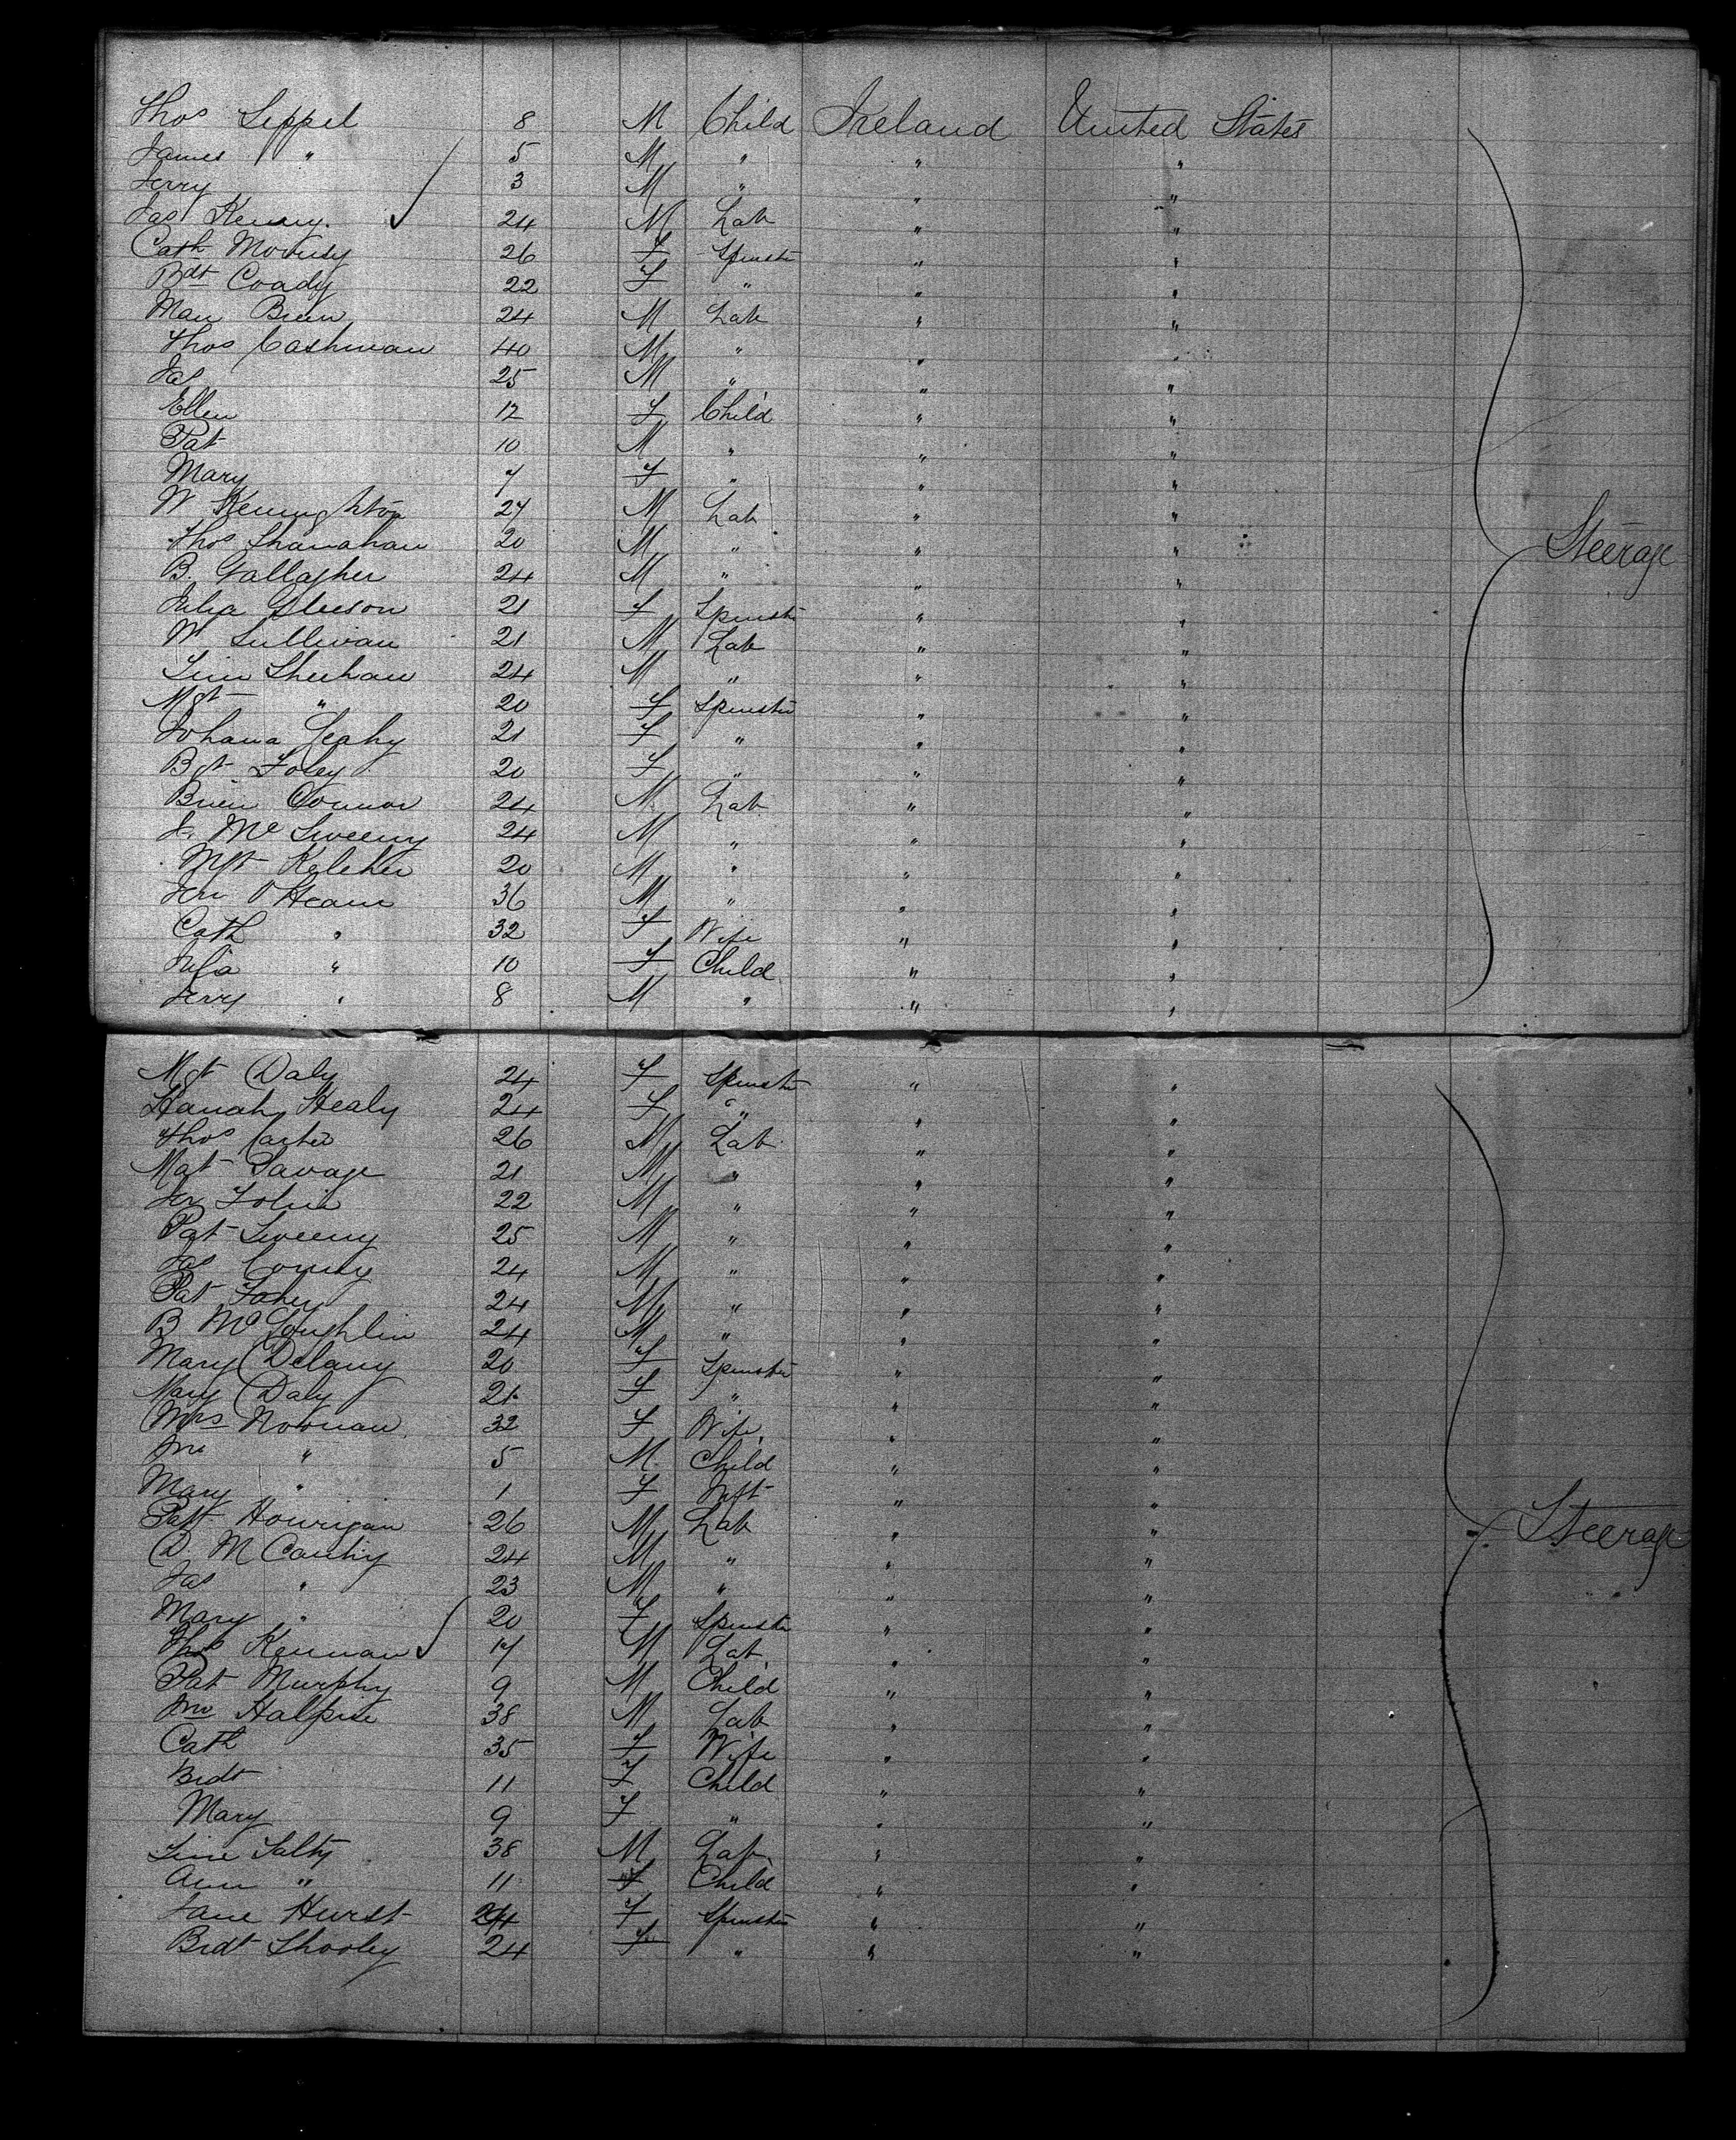 Thos Leppel 8 M Child Ireland United States
James " 5 M " " "
Jerry 3 M " " "
Jas Kenny 24 M Lab " "
Cath 26 F Spinstr " "
Bdt Coady 22 F " " "
Mau Brien 24 M Lab " "
Thos Cashman 40 M " " "
Jas 25 M " " "
Ellen 12 F Child " "
Pat 10 M " " "
Mary 7 F " " "
W 27 M Lab " "
Thos Shanahan 20 M " " " Steerage
B. Gallagher 24 M " " "
Julia Gleeson 21 F Spinstr " "
W Sullivan 21 M Lab " "
Tim Sheehan 24 M " " "
Mgt " 20 F Spinstr " "
Johana Leahy 21 F " " "
Bgt Foley 20 F " " "
Brien Connor 24 M Lab " "
J. Mc Sweeny 24 M " " "
Mgt Keleher 20 M " " "
Jer O'Hearn 36 M " " "
Cath " 32 F Wife " "
Julia " 10 F Child " "
Jerry " 8 M " " "
Mgt Daly 24 F Spinstr " "
Hanah Healy 24 F " " "
Thos Carter 26 M Lab " "
Mat Savage 21 M " " "
Jer Tobin 22 M " " "
Pat Sweeny 25 M " " "
Jas 24 M " " "
Pat Fahey 24 M " " "
B McLoughlin 24 M " " "
Mary Delany 20 F Spinstr " "
Mary Daly 21 F " " "
Mrs Noonan 32 F Wife " "
Jno " 5 M Child " "
Mary " 1 F Inft " "
Patt Hourigan 26 M Lab " " Steerage
D. McCarthy 24 M " " "
Jas " 23 M " " "
Mary " 20 F Spinstr " "
Thos Kennan 17 M Lab " "
Pat Murphy 9 M Child " "
Jno Halpin 38 M Lab " "
Cath 35 F Wife " "
Bridt 11 F Child " "
Mary 9 F " " "
Tim Falty 38 M Lab " "
Ann " 11 F Child " "
Jane Hurst 24 F Spinstr " "
Bridt Shooley 24 F " " "